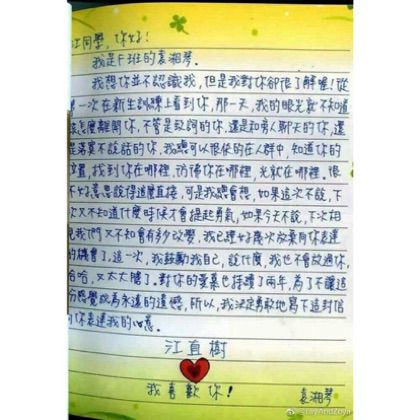 江同學，你好！
我是F班的袁湘琴。
我想你並不認識我，但是我對你卻很了解喔！從
第一次在新生訓練上看到你，那一天，我的眼光就不知道
該怎麼離開你，不管是致詞的你，還是和旁人聊天的你，還
是落寞不說話的你，我總可以很快的在人群中，知道你的
位置，找到你在哪裡，彷彿你在哪裡，光就在哪裡。很
不好意思說得這麼直接，可是我總會想，如果這次不說，下
次又不知道什麼時候才會提起勇氣，如果今天不說，下次相
見我們又不知會有多少改變，我已經好幾次放棄向你表達
的機會了，這一次，我鼓勵我自己，說什麼，我也不會放過你，
哈哈，又太大膽了。對你的愛慕也持續了兩年，為了不讓這
份感覺成為永遠的遺憾，所以，我決定勇敢地寫下這封信
向你表達我的心意。
江直樹
我喜歡你！
袁湘琴